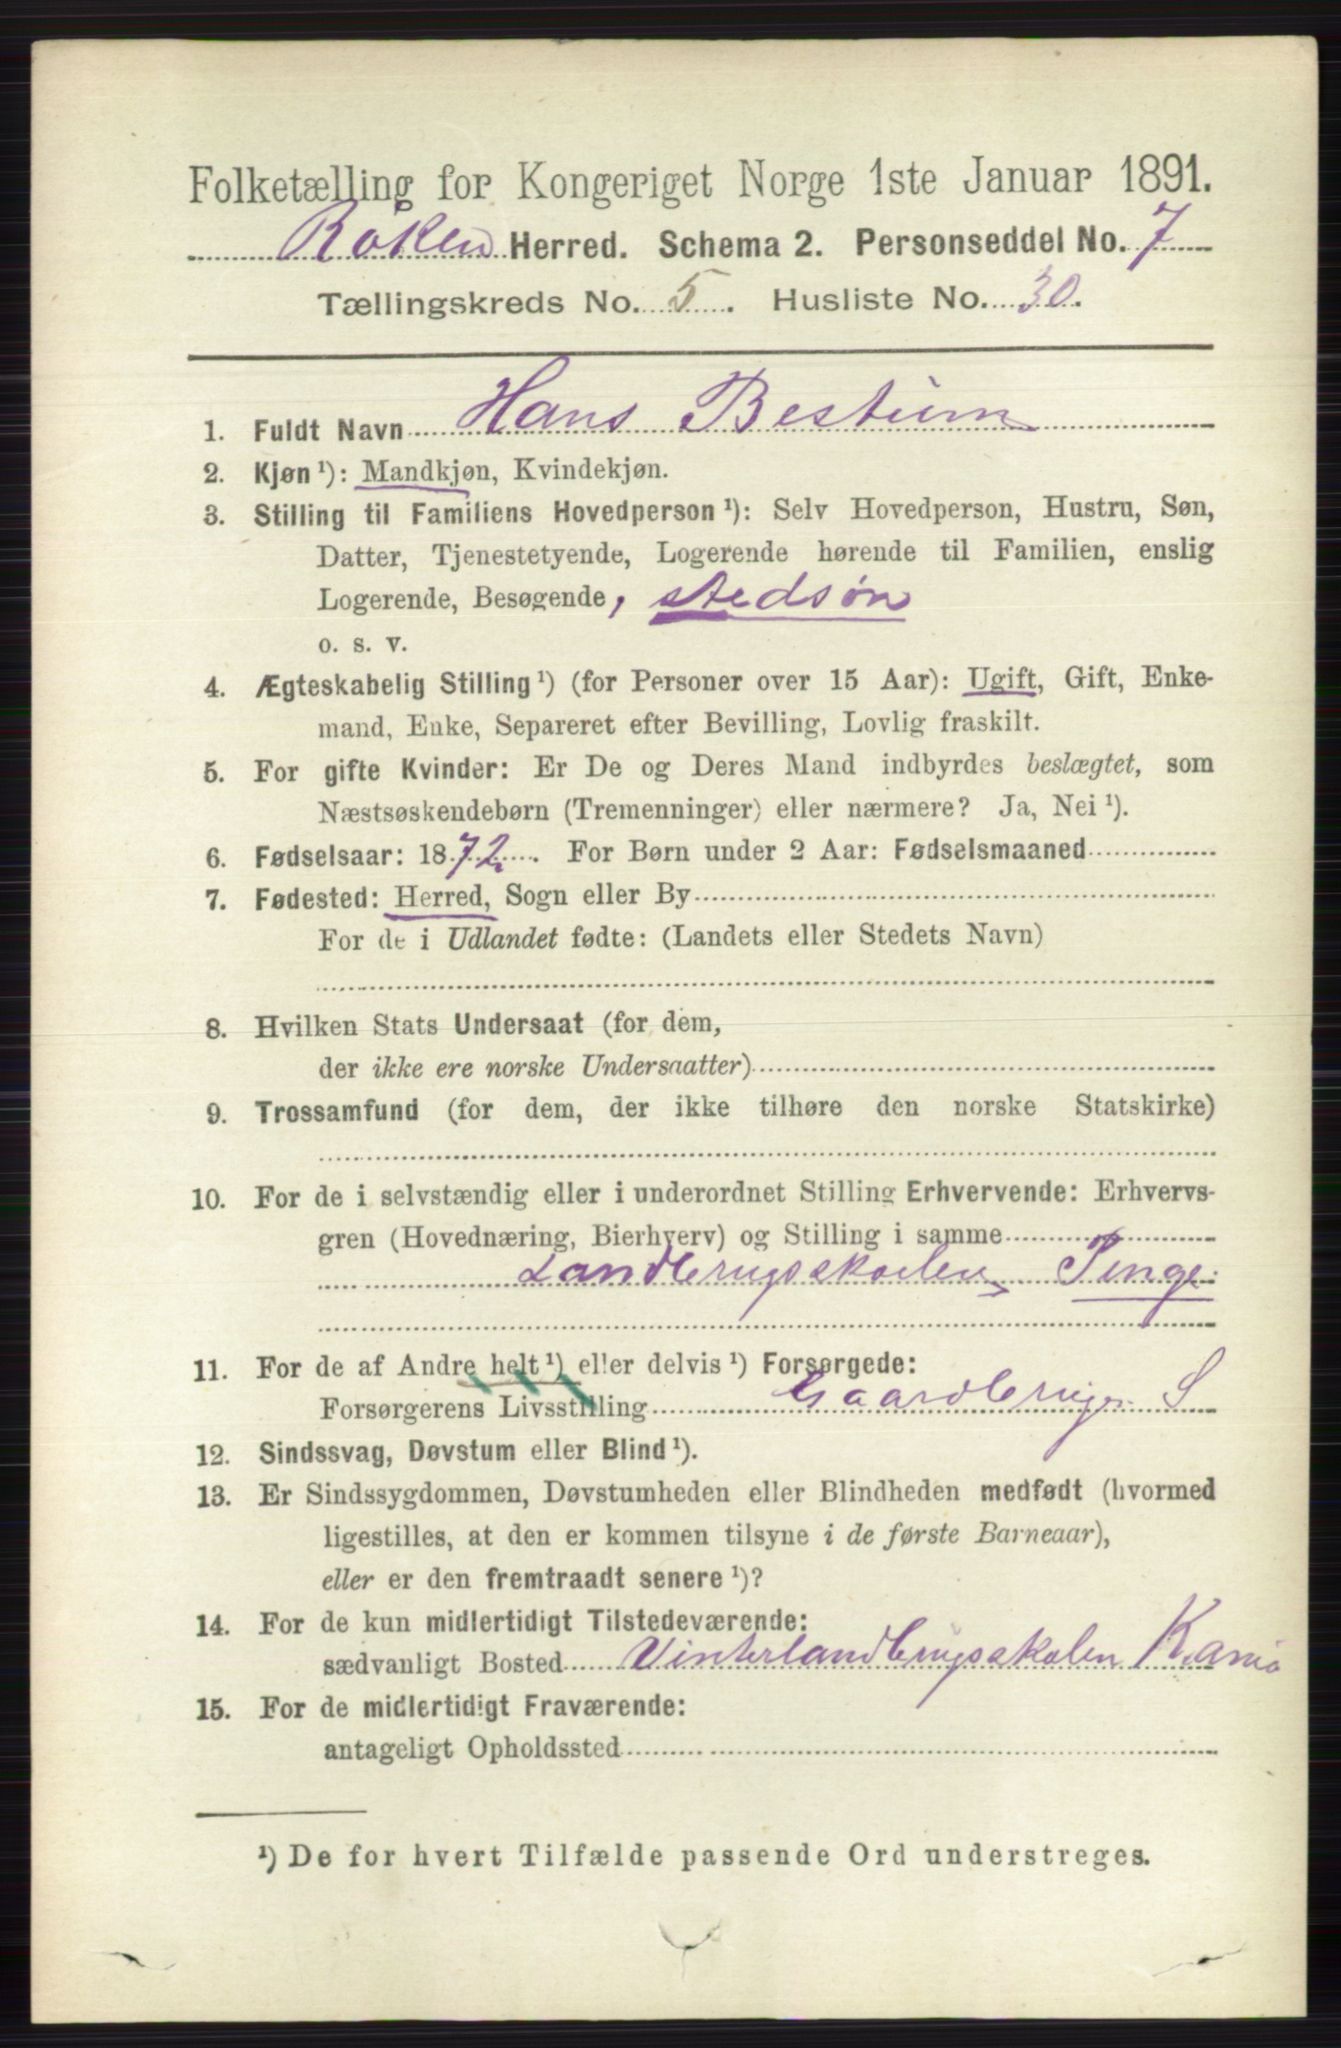 Folketælling for Kongeriget Norge 1ste Januar 1891.
Røken Herred. Schema 2. Personseddel No. 7
Tællingskreds No. 5. Husliste No. 30.
1. Fuldt Navn Hans Bestum
2. Kjøn ¹): Mandkjøn, Kvindekjøn.
3. Stilling til Familiens Hovedperson ¹): Selv Hovedperson, Hustru, Søn,
Datter, Tjenestetyende, Logerende hørende til Familien, enslig
Logerende, Besøgende, stedsøn
o. s. v.
4. Ægteskabelig Stilling ¹) (for Personer over 15 Aar): Ugift, Gift, Enke-
mand, Enke, Separeret efter Bevilling, Lovlig fraskilt.
5. For gifte Kvinder: Er De og Deres Mand indbyrdes beslægtet, som
Næstsøskendebørn (Tremenninger) eller nærmere? Ja, Nei ¹).
6. Fødselsaar: 1872. For Børn under 2 Aar: Fødselsmaaned
7. Fødested: Herred, Sogn eller By
For de i Udlandet fødte: (Landets eller Stedets Navn)
8. Hvilken Stats Undersaat (for dem,
der ikke ere norske Undersaatter)
9. Trossamfund (for dem, der ikke tilhøre den norske Statskirke)
10. For de i selvstændig eller i underordnet Stilling Erhvervende: Erhvervs-
gren (Hovednæring, Bierhverv) og Stilling i samme
Landbrugsskoelev
11. For de af Andre helt ¹) eller delvis ¹) Forsørgede:
Forsørgerens Livsstilling Gaardbruger S
12. Sindssvag, Døvstum eller Blind ¹).
13. Er Sindssygdommen, Døvstumheden eller Blindheden medfødt (hvormed
ligestilles, at den er kommen tilsyne i de første Barneaar),
eller er den fremtraadt senere ¹)?
14. For de kun midlertidigt Tilstedeværende:
sædvanligt Bosted Vinterlandbrugsskolen
15. For de midlertidigt Fraværende:
antageligt Opholdssted
¹) De for hvert Tilfælde passende Ord understreges.